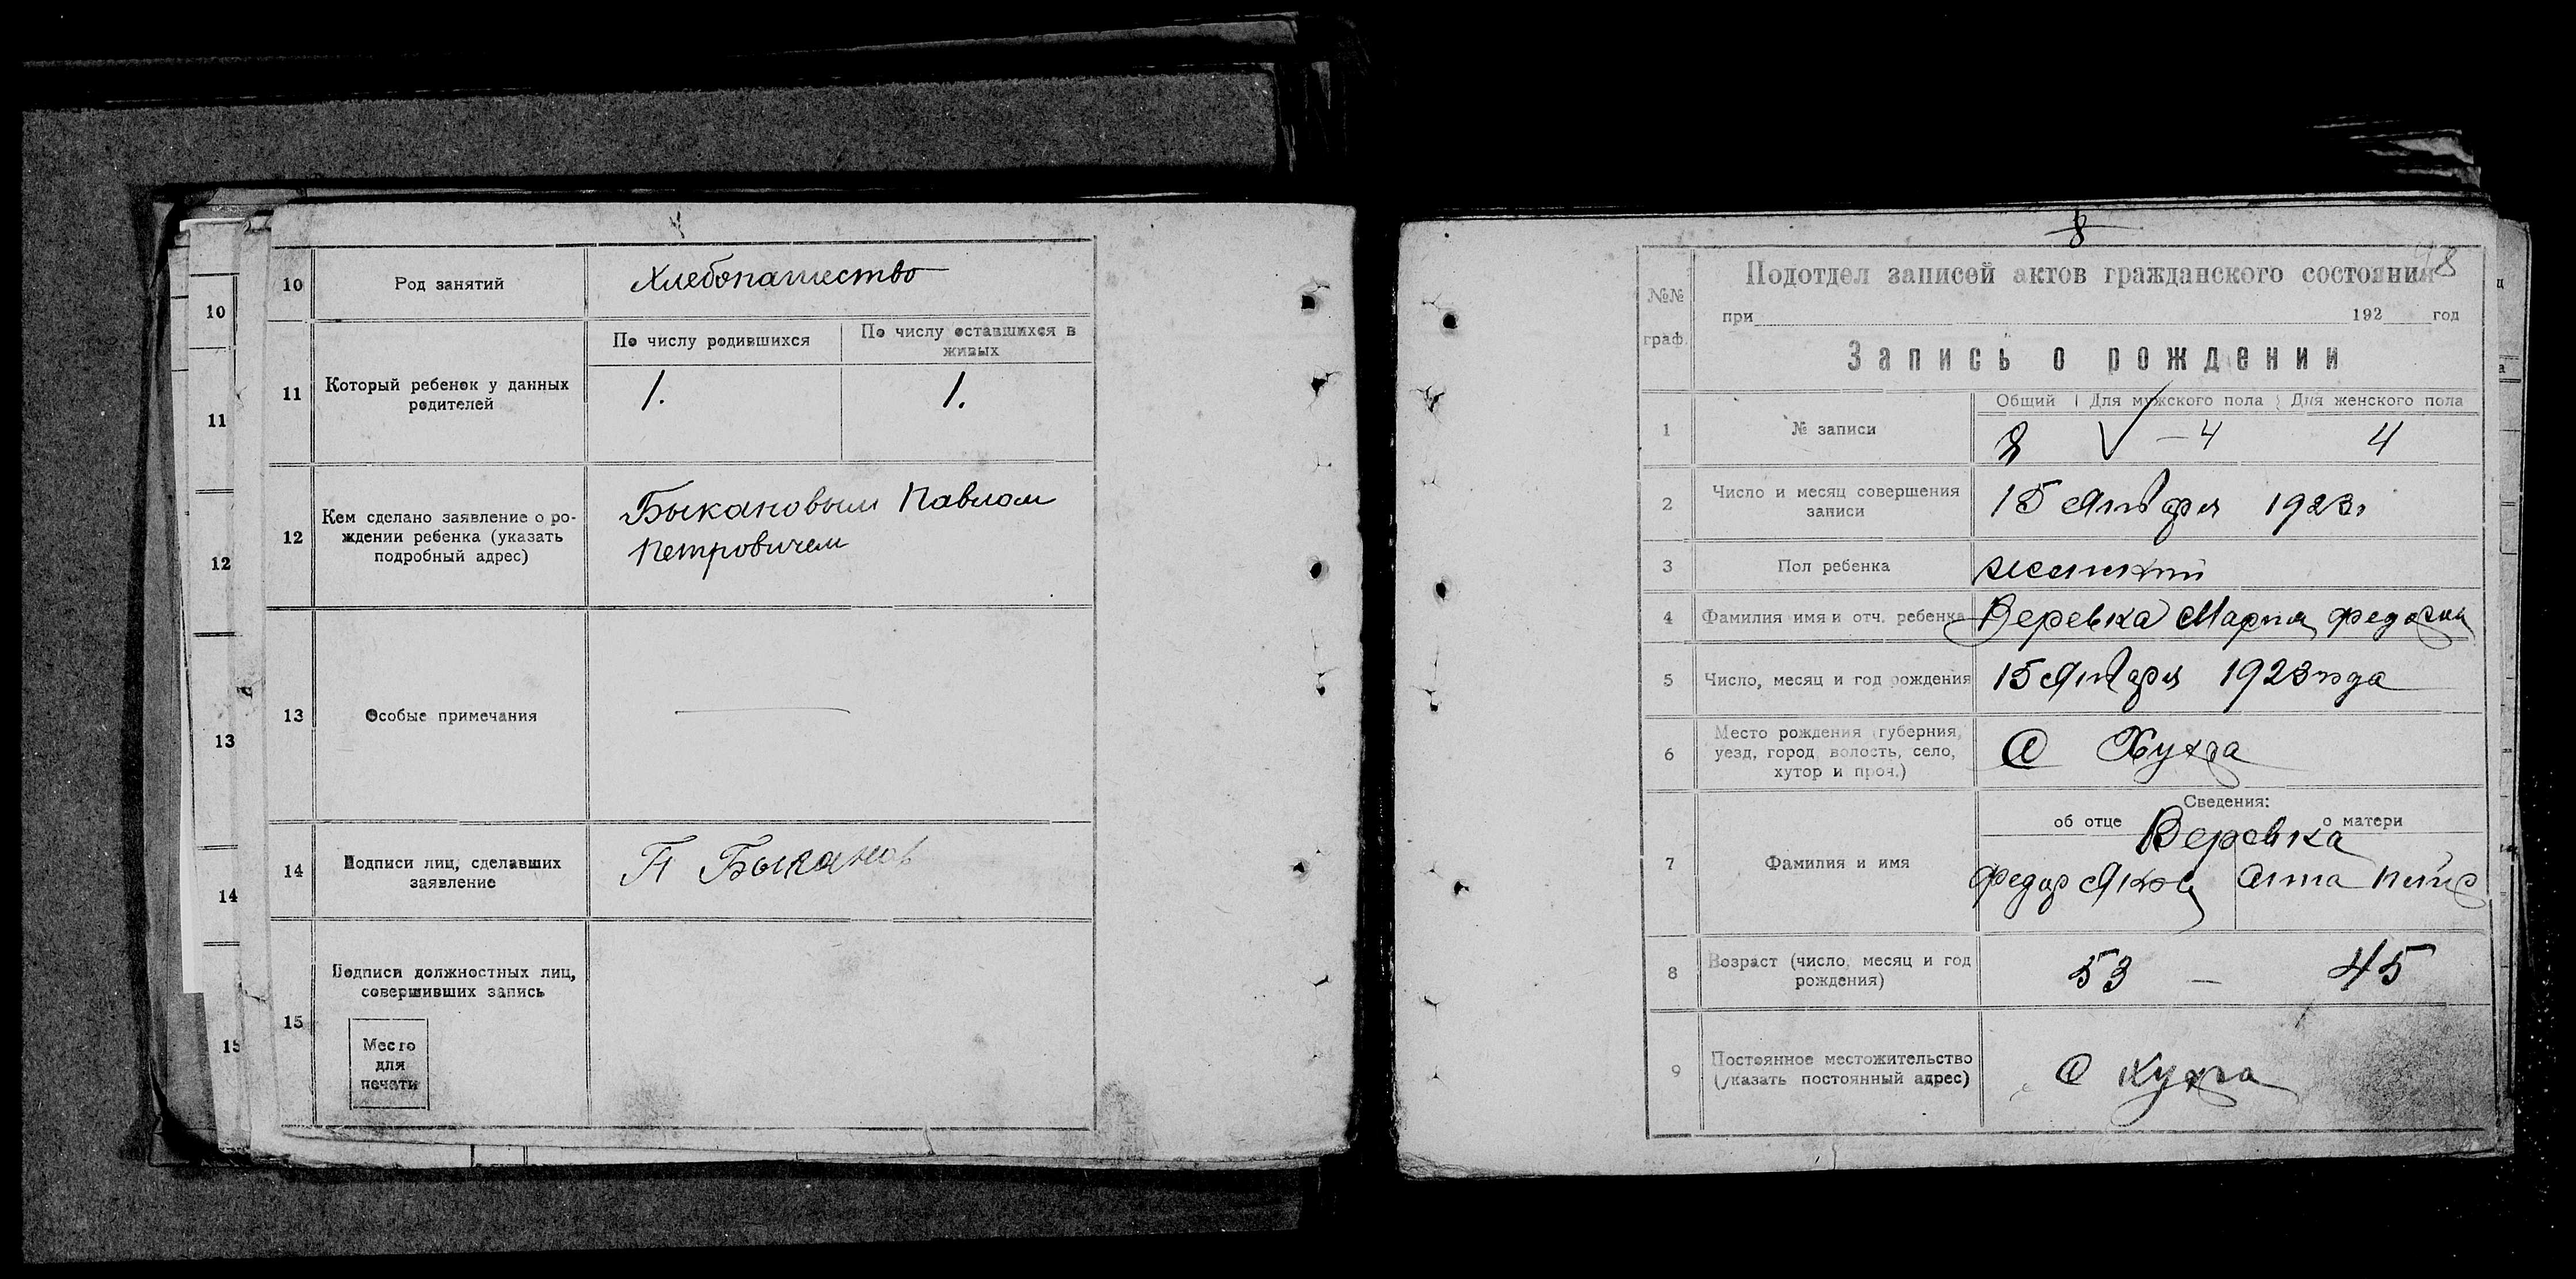 10 Род занятий Хлебопашество
11 Который ребенок у данных родителей
По числу родившихся По числу оставшихся в живых
1. 1.
12 Кем сделано заявление о ро-
ждении ребенка (указать
подробный адрес)
Быкановым Павлом
Петровичем
13 Особые примечания
14 Подписи лиц, сделавших
заявление
П Быканов
15 Подписи должностных лиц,
совершивших запись
Место
для
печати
10
11
12
13
14
15
8
98
№№
граф.
Подотдел записей актов гражданского состояния
при 192 год
Запись о рождении
Общий Для мужского пола Для женского пола
1 № записи 8 — 4 4
2 Число и месяц совершения
записи
15 Января 1923г
3 Пол ребенка женский
4 Фамилия имя и отч. ребенка Веревка Мария Федоров
5 Число, месяц и год рождения 15 Января 1923 года
6 Место рождения (губерния,
уезд, город, волость, село,
хутор и проч.)
С Хухра
Сведения:
об отце о матери
Веревка
7 Фамилия и имя
Федор Яков Анна
8 Возраст (число, месяц и год
рождения)
53 — 45
9 Постоянное местожительство
(указать постоянный адрес)
С Хухра